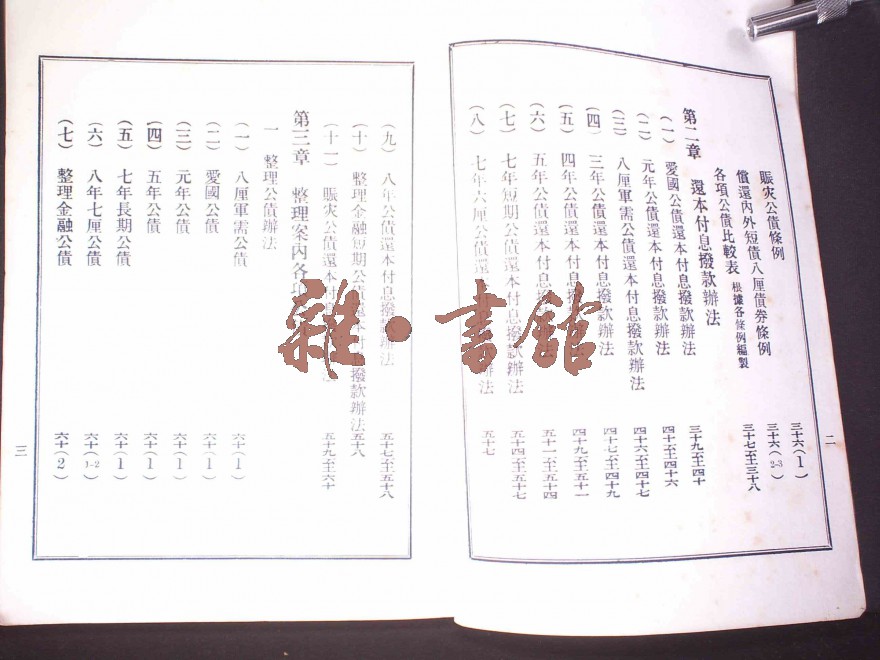 二
賑灾公債條例 三十六(1)
償還內外短債八厘債券條例 三十六(2-3)
各項公債比較表 根據各條例編製 三十七至三十八
第二章 還本付息撥款辦法 三十九至四十
(一) 愛國公債還本付息撥款辦法 四十至四十六
(二) 元年公債還本付息撥款辦法 四十六至四十七
(三) 八厘軍需公債還本付息撥款辦法 四十七至四十九
(四) 三年公債還本付息撥款辦法 四十九至五十一
(五) 四年公債還本付息撥款辦法 五十一至五十四
(六) 五年公債還本付息撥款辦法 五十四至五十七
(七) 七年短期公債還本付息撥款辦法
(八) 七年六厘公債還本付息 辦法 五十七
(九) 八年公債還本付息撥款辦法 五十七至五十八
(十) 整理金融短期公債還本付息撥款辦法 五十八
(十一) 賑灾公債還本付息 法 五十九至六十
第三章 整理案內各項
一 整理公債辦法
(一) 八厘軍需公債 六十(1)
(二) 愛國公債 六十(1)
(三) 元年公債 六十(1)
(四) 五年公債 六十(1)
(五) 七年長期公債 六十(1)
(六) 八年七厘公債 六十(1-2)
(七) 整理金融公債 六十(2)
三
雜·書館